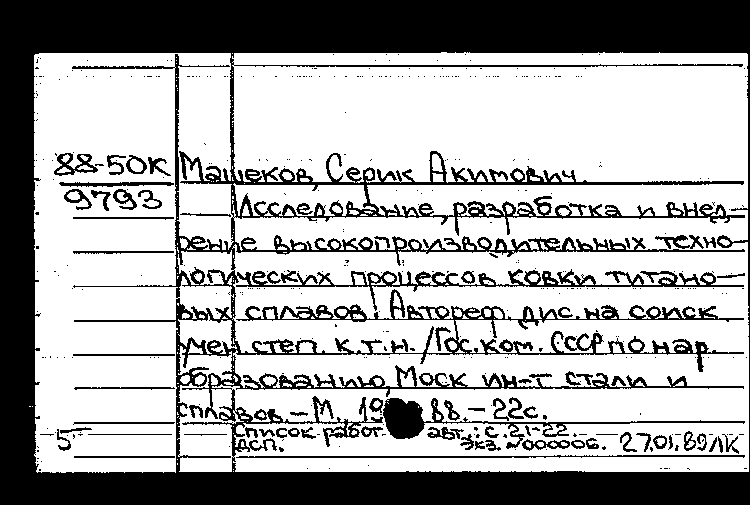 88-50К Машеков, Серик Акимович.
9793 Исследование, разработка и внед-
рение высокопроизводительных техно-
логических процессов ковки титано-
вых сплавов: Автореф. дис. на соиск.
учен. степ. к.т.н. /Гос. ком. СССР по нар.
образованию, Моск ин-т стали и
сплавов. – М., 1988. – 22с.
Список работ авт.: с. 21-22.
5 ДСП. Экз. №000006. 27.01.89ЛК